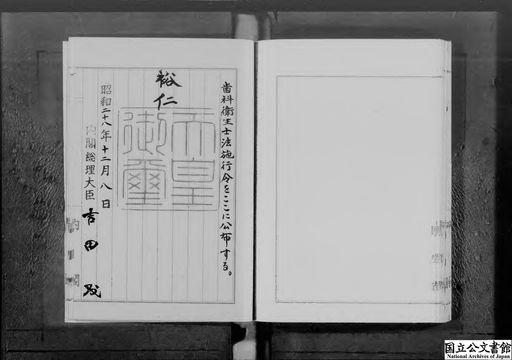 歯科衛生士法施行令をここに公布する。
裕仁
天皇御璽
昭和二十八年十二月八日
内閣総理大臣 吉田茂
国立公文書館
National Archives of Japan